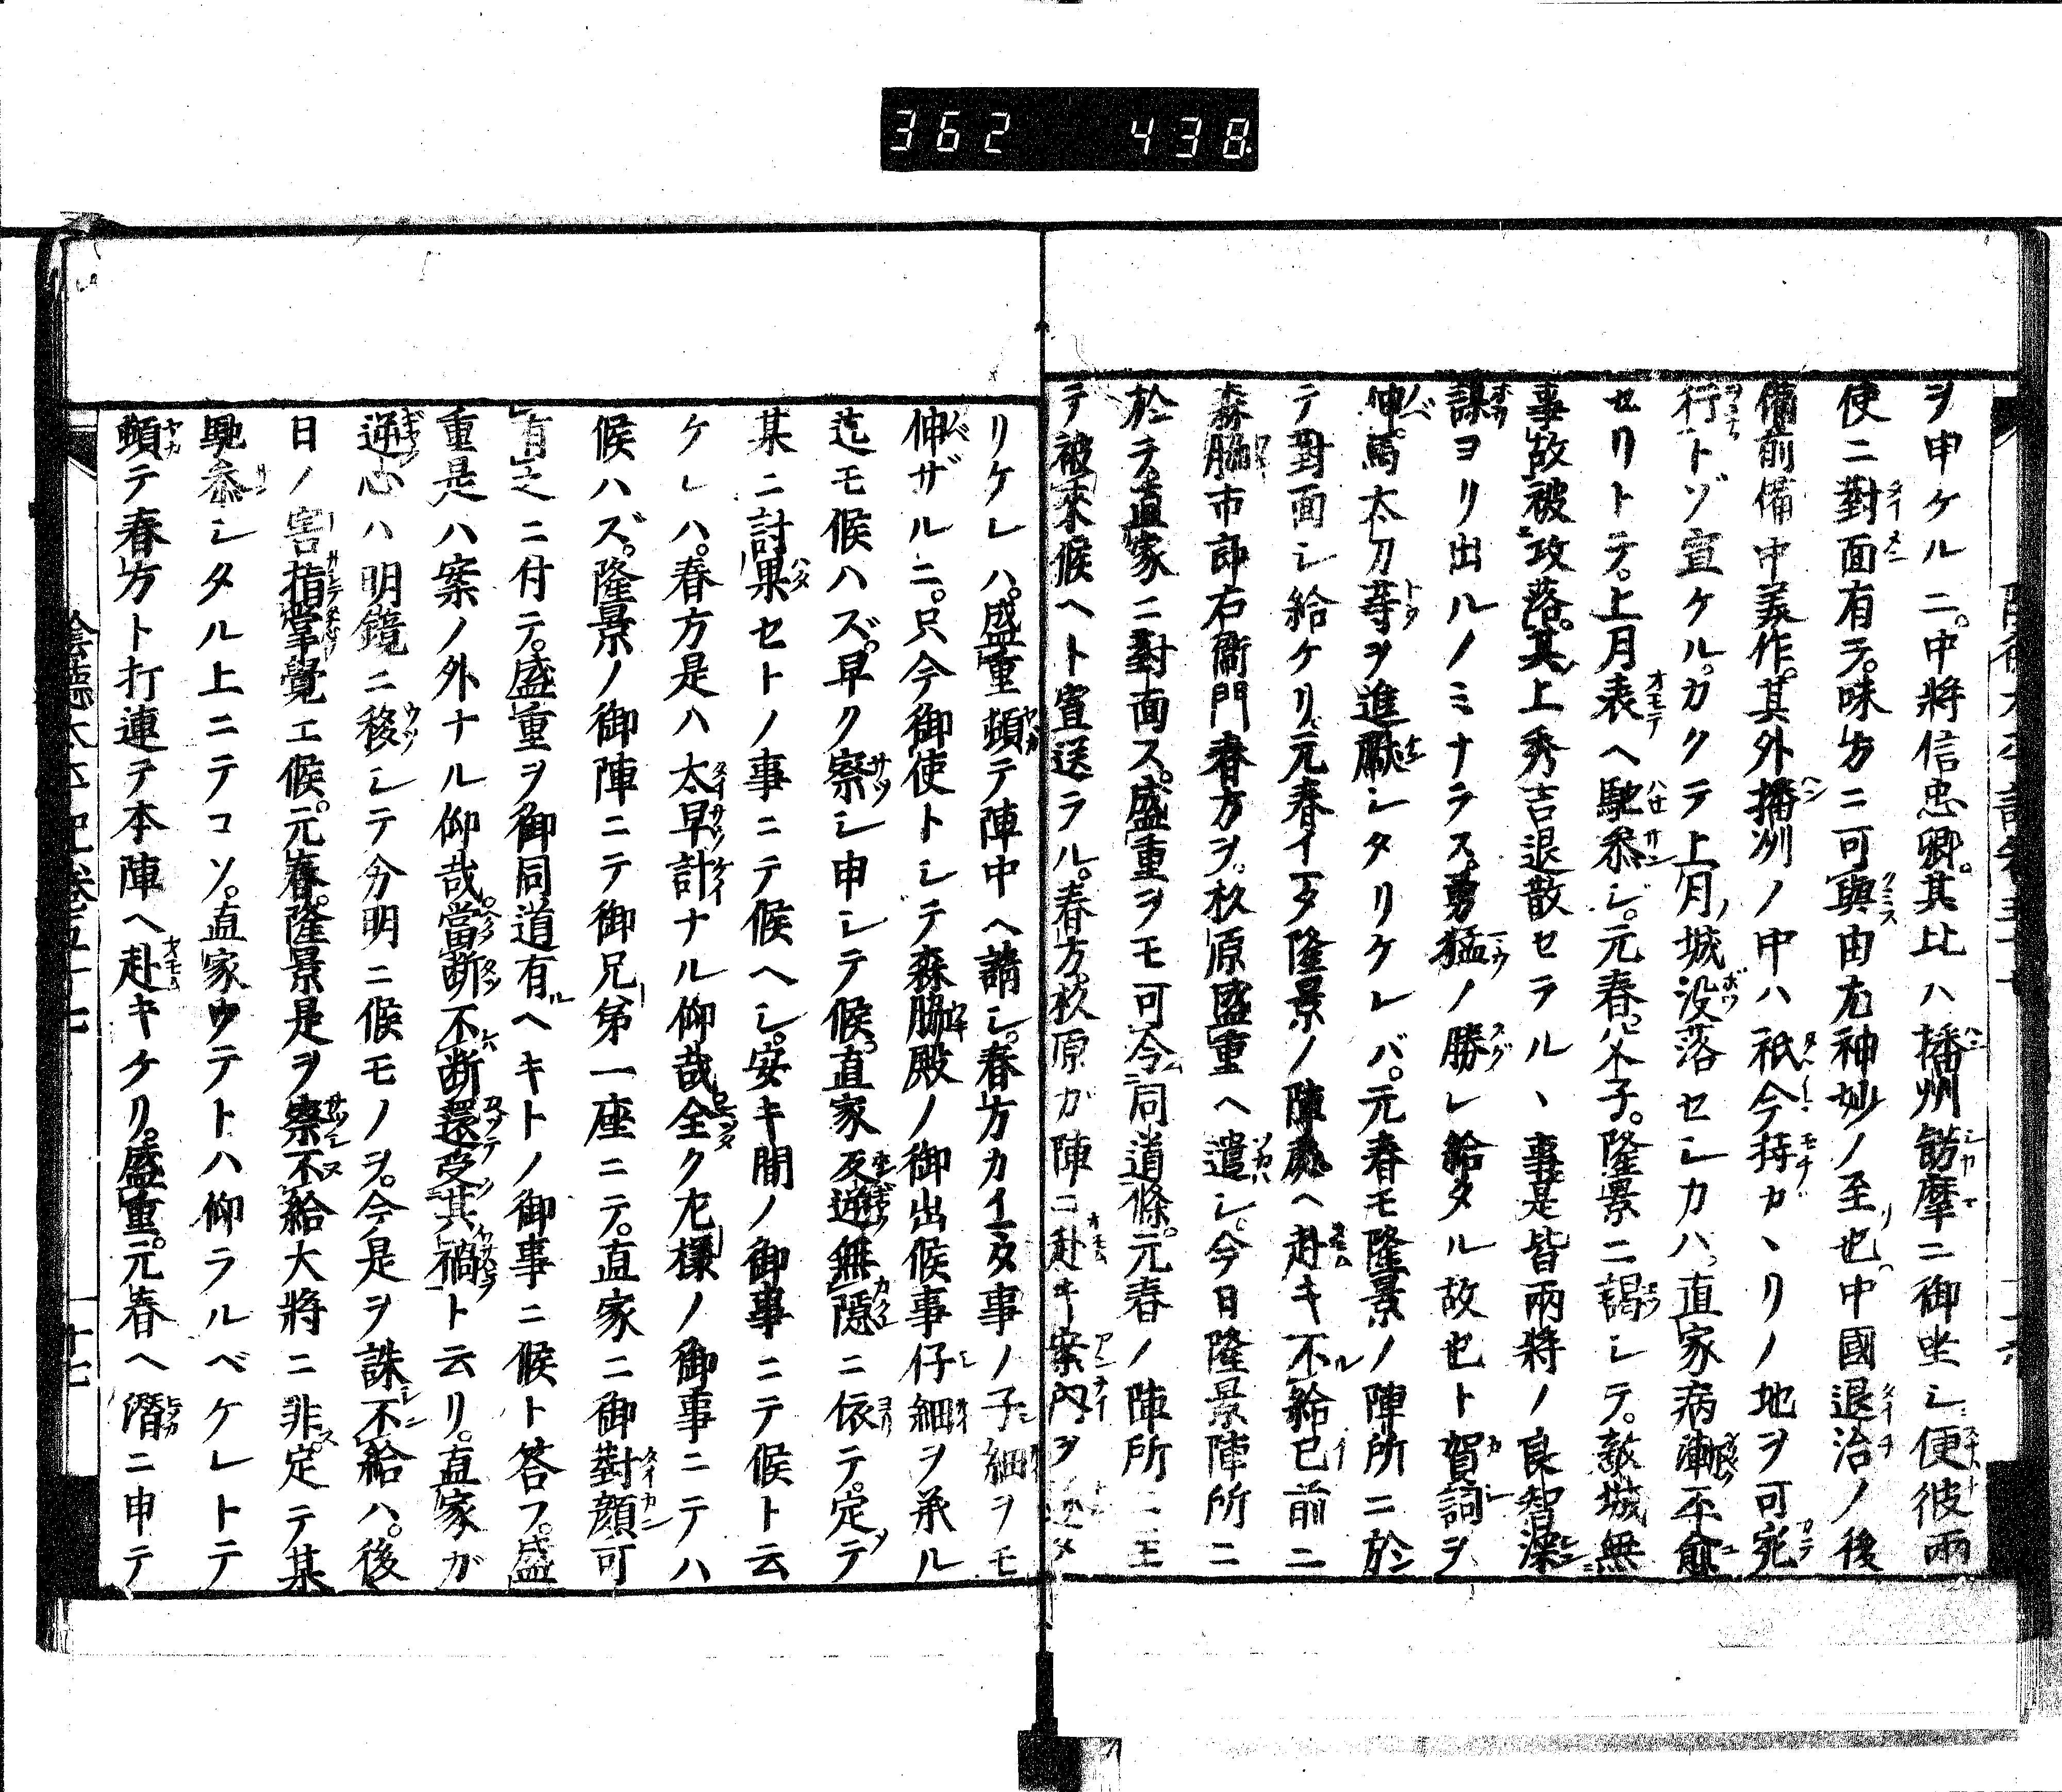 362 438
ヲ申ケルニ。中將信忠卿。其比ハ播州餝摩ニ御坐シ便彼兩
使ニ對面有テ。味方ニ可與由尤神妙ノ至也。中國退治ノ後
備前備中美作。其外播州ノ中ハ祇今持ガヽリノ地ヲ可宛
行トゾ宣ケル。カクテ上月ノ城没落セシカハ。直家病漸平愈
セリトテ。上月表ヘ馳參シ。元春父子。隆景ニ謁シテ。敵城無
事故被攻落。其上秀吉退散セラルヽ事是皆兩將ノ良智深
謀ヨリ出ルノミナラス。勇猛ノ勝レ給タル故也ト賀詞ヲ
伸。馬太刀等ヲ進獻シタリケレバ。元春モ隆景ノ陣所ニ於
テ對面シ給ケリ。元春イマタ隆景ノ陣處ヘ赴キ不給已前ニ
森脇市郎右衞門春方ヲ。杉原盛重ヘ遣シ。今日隆景陣所ニ
於テ。直家ニ對面ス。盛重ヲモ可令同道條。元春ノ陣所ニ至
テ被來候ヘト宣送ラル。春方。杉原カ陣ニ赴キ案内ヲ
リケレハ。盛重頓テ陣中ヘ請シ。春方カイマタ事ノ子細ヲモ
伸ザルニ。只今御使トシテ森脇殿ノ御出候事仔細ヲ承ル
迄モ候ハズ。早ク察シ申シテ候。直家反逆無隱ニ依テ。定テ
某ニ討果セトノ事ニテ候ヘシ。安キ間ノ御事ニテ候ト云
ケレハ。春方是ハ太早計ナル仰哉。全ク左樣ノ御事ニテハ
候ハズ。隆景ノ御陣ニテ御兄弟一座ニテ。直家ニ御對顔可
有之ニ付テ。盛重ヲ御同道有ヘキトノ御事ニ候ト答フ。盛
重是ハ案ノ外ナル仰哉。當斷不斷還受其禍ト云リ。直家ガ
逆心ハ明鏡ニ移シテ分明ニ候モノヲ。今是ヲ誅不給ハ。後
日ノ害指掌覺エ候。元春。隆景是ヲ察不給大將ニ非ス。定テ某
馳參シタル上ニテコソ。直家ウテトハ仰ラルベケレトテ
頓テ春方ト打連テ本陣ヘ赴キケリ。盛重。元春ヘ潛ニ申テ
陰德太平記卷五十七 十七